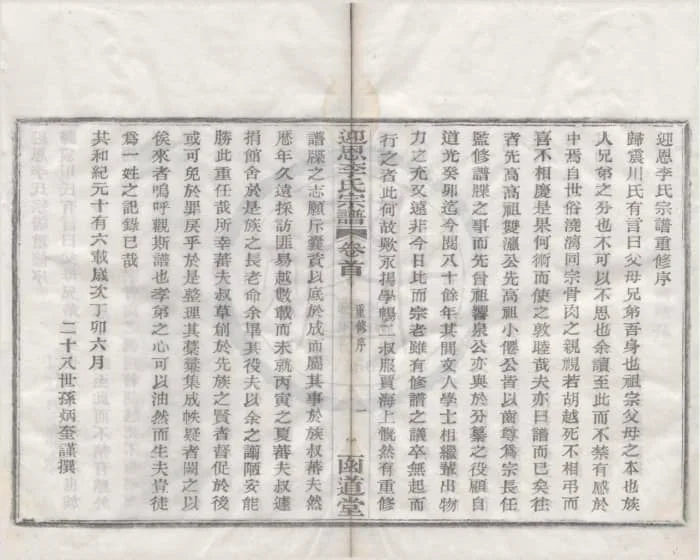 迎恩李氏宗譜重修序
歸震川氏有言曰父母兄弟吾身也祖宗父母之本也族
人兄弟之分也不可以不思也余讀至此而不禁有感於
中焉自世俗澆漓同宗骨肉之親視若胡越死不相弔而
喜不相慶是果何術而使之敦睦哉夫亦曰譜而已矣往
者先高高祖雙瀛公先高祖小僊公皆以齒尊為宗長任
監修譜牒之事而先曾祖響泉公亦與於分纂之役顧自
道光癸卯迄今閱八十餘年其間文人學士相繼輩出物
力之充又遠非今日比而宗老雖有修譜之議卒無起而
行之者此何故歟永揚學暢二叔服賈海上慨然有重修
迎恩李氏宗譜
卷首
重修序
一
函道堂
譜牒之志願斥囊貲以底於成而屬其事於族叔蕃夫然
歷年久遠採訪匪易越數載而未就丙寅之夏蕃夫叔遽
捐館舍於是族之長老命余畢其役夫以余之謭陋安能
勝此重任哉所幸蕃夫叔草創於先族之賢者督促於後
或可免於罪戾乎於是整理其藁彙集成帙疑者闕之以
俟來者嗚呼觀斯譜也孝弟之心可以油然而生夫豈徒
為一姓之記錄已哉
共和紀元十有六載歲次丁卯六月
二十八世孫炳奎謹撰